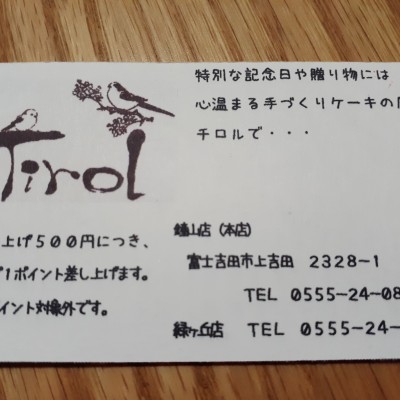 特別な記念日や贈り物には
心温まる手づくりケーキの
チロルで・・・
Tirol
上げ500円につき、
1ポイント差し上げます。
イント対象外です。
鐘山店（本店）
富士吉田市上吉田 2328-1
TEL 0555-24-08
緑ヶ丘店 TEL 0555-24-